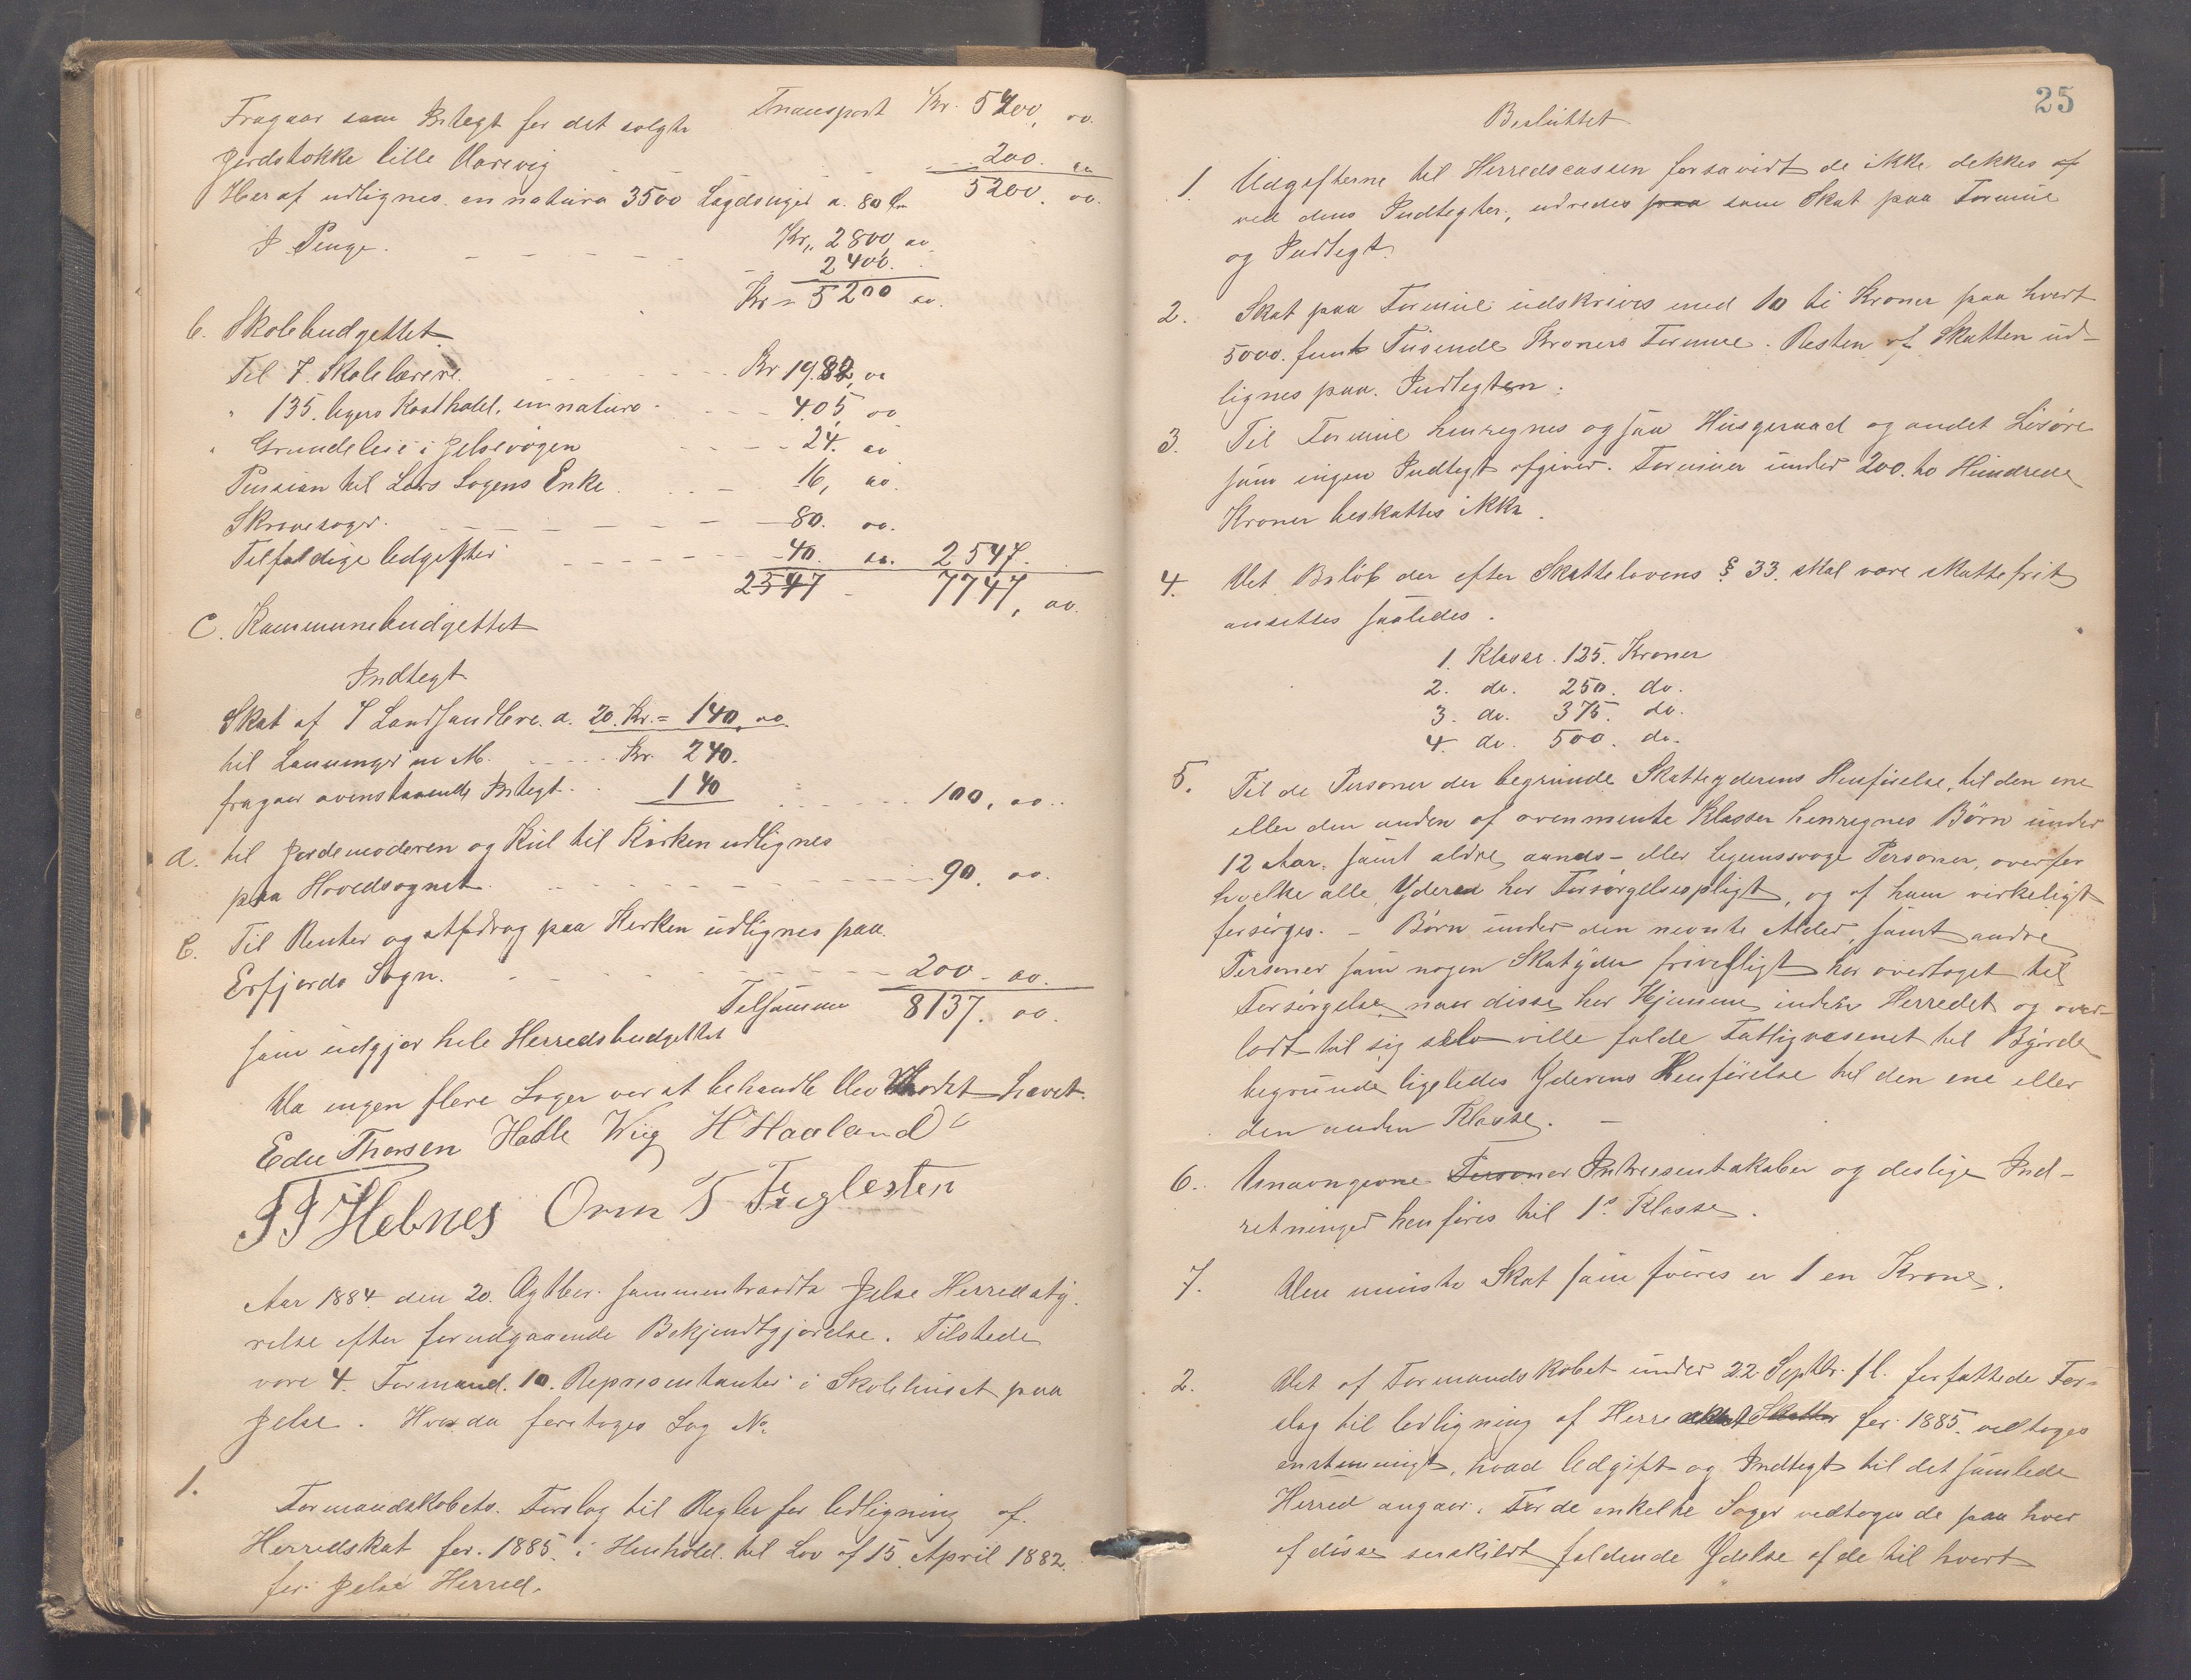 Transport Kr. 5200, oo.
Fragaar som Integt for det solgte
Jordstokke lille Varevig 200. oo
5200. oo.
Heraf udlignes en natura 3500 Lægdsuger a. 80 Ør
Kr,. 2800, oo
I Penge. 2400.
Kr = 5200 oo.
b. Skolebudgettet.
Til 7. Skolelærere. Kr 1982, oo
" 135. Ugers Kosthold, en natura 405 oo
" Grundeleie i Jelsevogen 24. oo
Pension til Lars Sogens Enke 16, oo.
Skovesager. 80. oo.
Tilfældige Udgifter 40. oo. 2547.
2547 - 7747, oo.
C. Kommunebudgettet
Indtegt
Skat af 7 Landhandlere. a. 20. Kr. = 140, oo.
til Lønninger m M. Kr. 240.
fragaar ovenstaaende Integt. 140 100, oo.
a. til Jordemoderen og Kul til Kirken udlignes
paa Hovedsognet 90. oo.
b. Til Renter og Afdrag paa Kirken udlignes paa
Erfjords Sogn. 200 - oo.
Tilsammen 8137. oo.
som udgjør hele Herredsbudgettet
Da ingen flere Sager var at behandle blev Mødet hævet.
Edu Thorsen Halle Wiig H Haaland
T T Hebnes Orm T Fuglesten
Aar 1884 den 20. Ogtber. sammentraadte Jelse Herredsty-
relse efter forudgaaende Bekjendtgjørelse. Tilstede
vare 4. Formænd. 10. Representanter i Skolehuset paa
Jelse. Hvor da foretoges Sag No
1.
Formandskabets. Forslag til Regler for Udligning af.
Herredskat for. 1885. i Henhold til Lov af 15. April 1882.
for Jelse Herred.
25
Besluttet
1. Udgifterne til Herredscassen forsavidt de ikke dekkes af
ved dens Indtegter, udredes paa som Skat paa Formue
og Indtegt.
2. Skat paa Formue udskrives med 10 ti Kroner paa hvert
5000. fem Tusende Kroners Formue. Resten af Skatten ud-
lignes paa. Indtegten.
3. Til Formue henregnes ogsaa Husgeraad og andet Løsøre
som ingen Indtegt afgiver. Formuer under 200. to Hundrede
Kroner beskattes ikke.
4. Det Beløb der efter Skattelovens § 33. skal være skattefrit
ansettes saaledes.
1. Klasse. 125. Kroner
2. do. 250. do.
3. do. 375. do.
4. do. 500. do.
5. Til de Personer der begrunde Skatteyderens Henførelse, til den ene
eller den anden af ovenmente Klasser henregnes Børn under
12 Aar. samt eldre, aands- eller legemssvage Personer, overfor
hvilke alle, Yderen har Forsørgelsespligt, og af ham virkeligt
forsørges. - Børn under den nevnte Alder, samt andre
Personer som nogen Skatyder frivilligt har overtaget til
Forsørgelse, naar disse har Hjemme inden Herredet og over-
ladt til sig selv ville falde Fattigvæsenet til Byrde
begrunde ligeledes Yderens Henførelse til den ene eller
den anden Klasse. -
6. Unavngivne Personer Intressentskaber og deslige Ind-
retninger henføres til 1ste Klasse.
7. Den minste Skat som svares er 1 en Krone.
2. Det af Formandskabet under 22 Septbr. fl. forfattede For-
slag til Udligning af Herredskat Skatter for 1885. vedtoges
enstemmigt, hvad Udgift og Indtegt til det samlede
Herred angaar. For de enkelte Soger vedtoges de paa hver
af disse serskildt faldende Ydelse af de til hvert